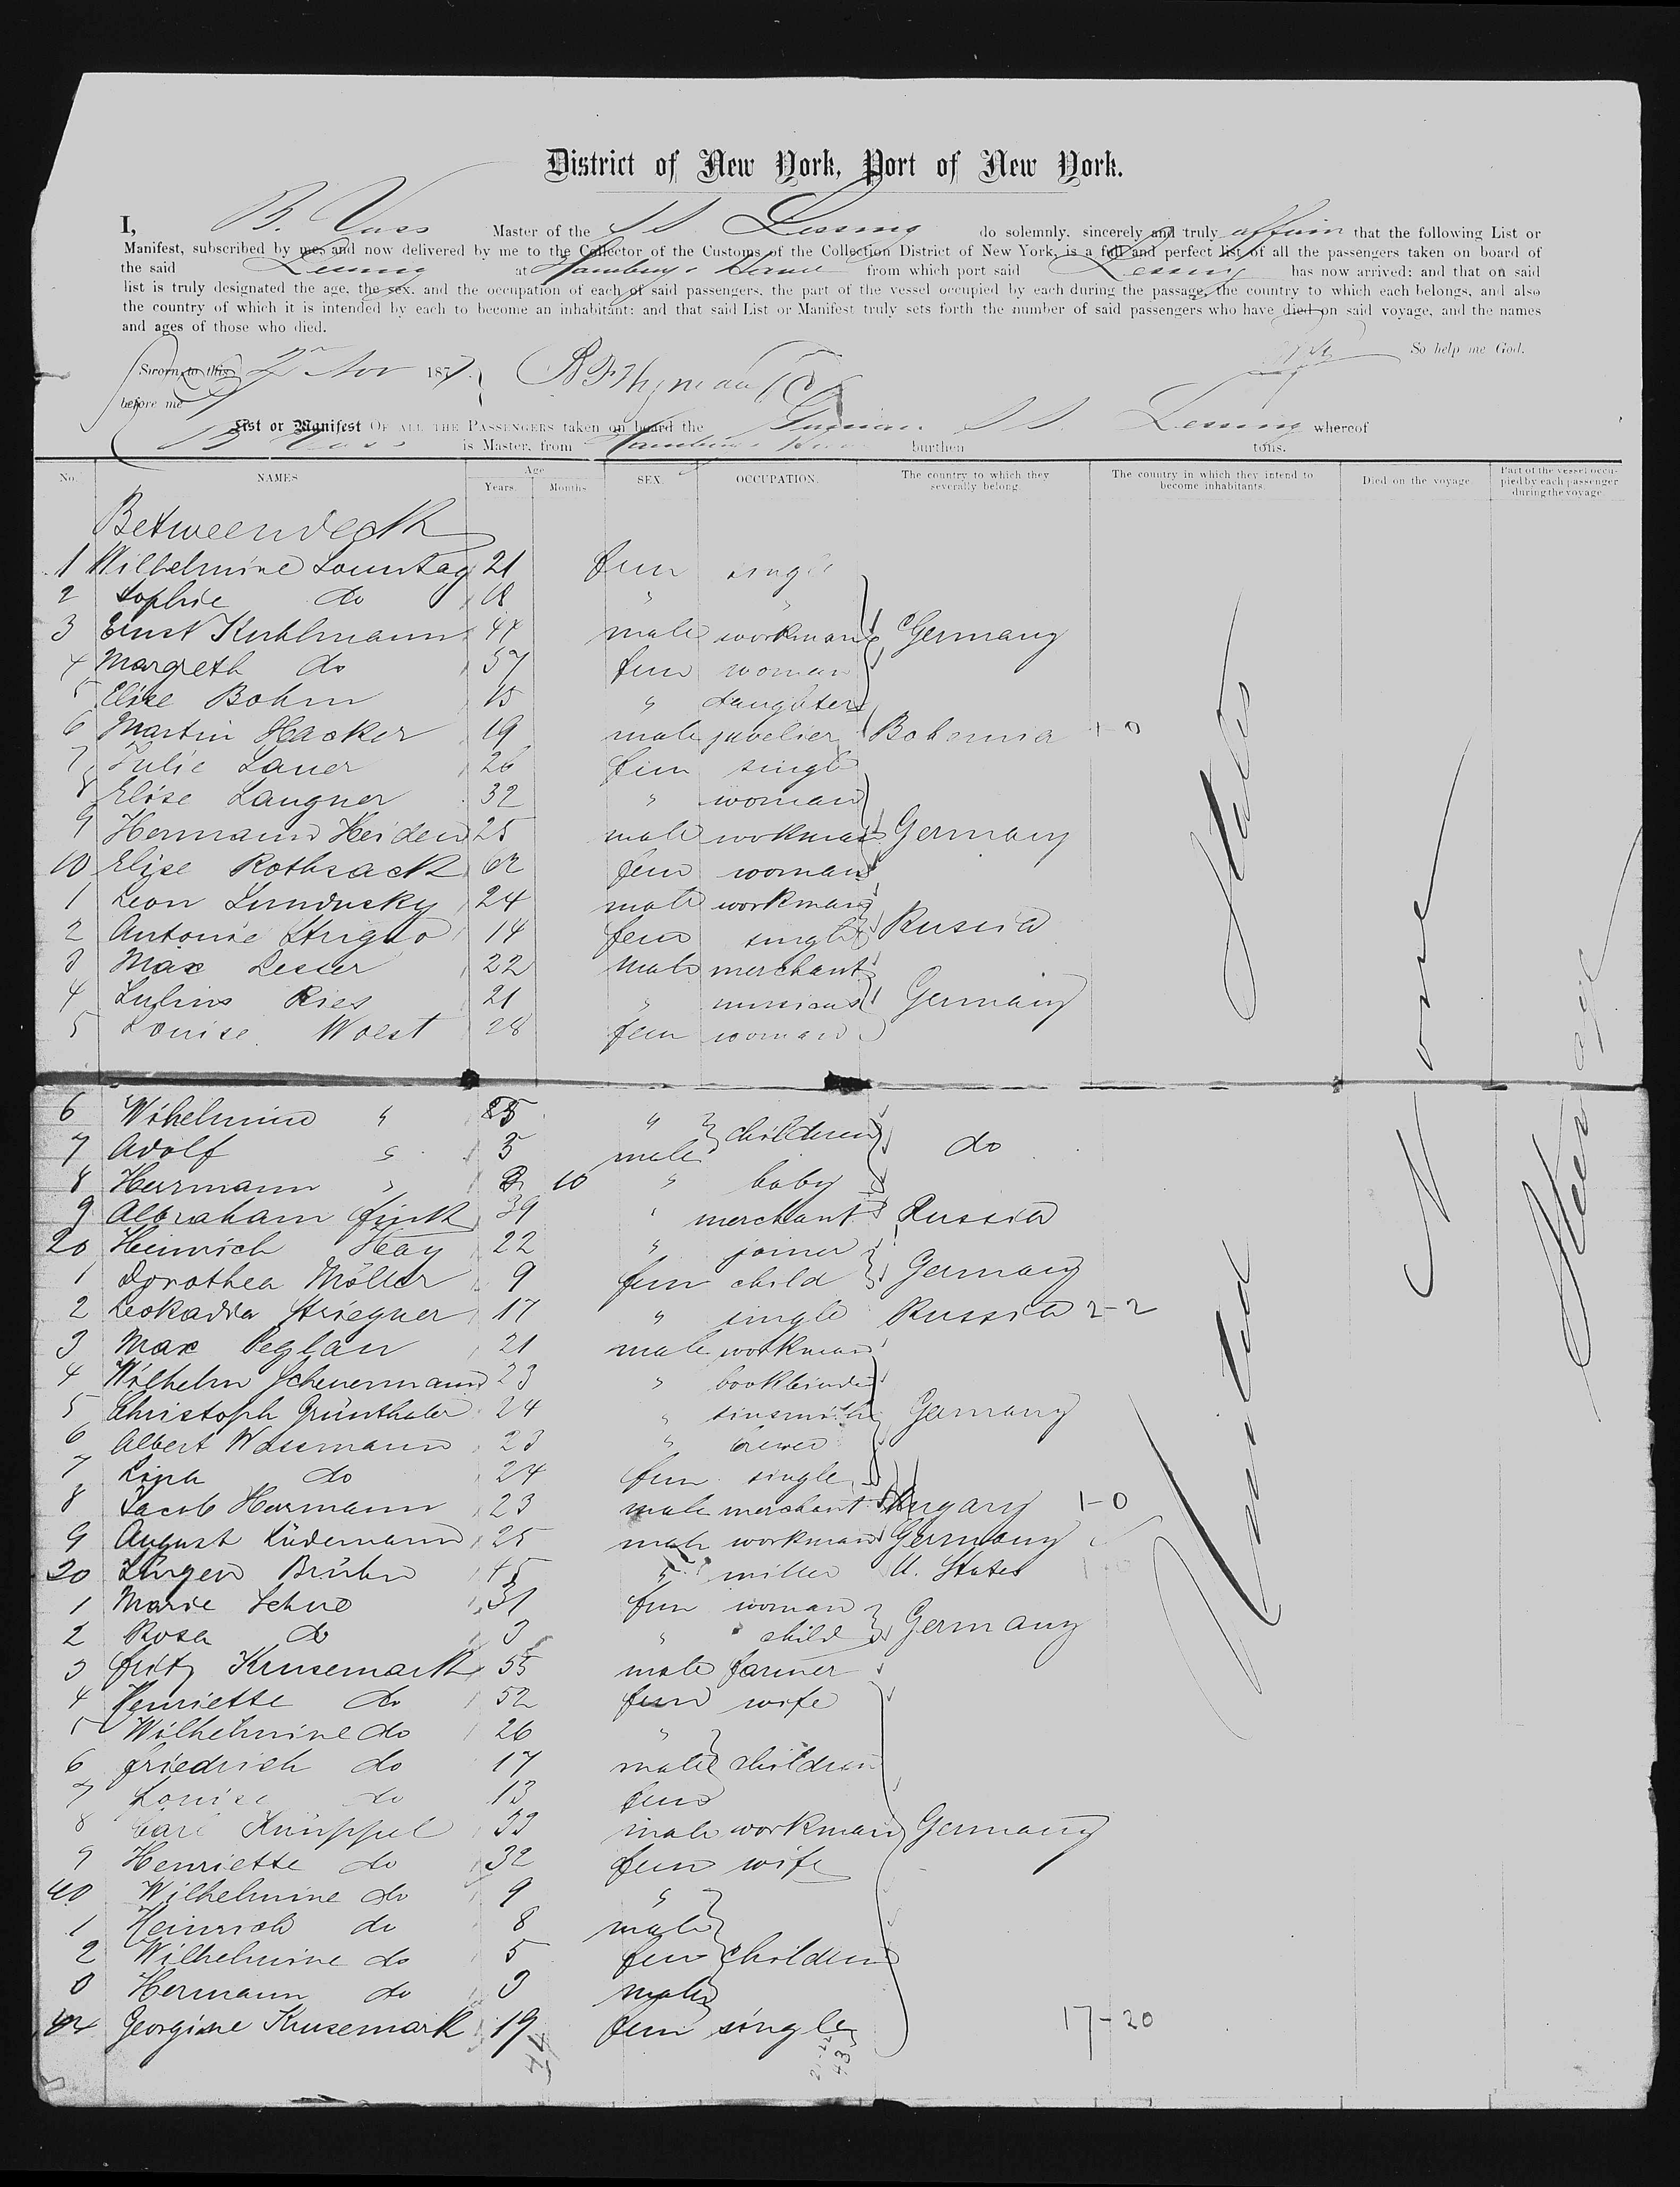 District of New York, Port of New York.
I, B. Voss Master of the S S Lessing do solemnly, sincerely and truly affirm that the following List or
Manifest, subscribed by me, and now delivered by me to the Collector of the Customs of the Collection District of New York, is a full and perfect list of all the passengers taken on board of
the said Lessing at Hamburg & Havre from which port said Lessing has now arrived: and that on said
list is truly designated the age, the sex, and the occupation of each of said passengers, the part of the vessel occupied by each during the passage, the country to which each belongs, and also
the country of which it is intended by each to become an inhabitant: and that said List or Manifest truly sets forth the number of said passengers who have died on said voyage, and the names
and ages of those who died.
So help me God.
Sworn to this 2 Nov 187
before me
List or Manifest OF ALL THE PASSENGERS taken on board the German S S. Lessing whereof
B Voss is Master, from Hamburg burthen tons.
No. NAMES Age Years. Months SEX. OCCUPATION. The country to which they severally belong. The country in which they intend to become inhabitants. Died on the voyage. Part of the vessel occupied by each passenger during the voyage
Betweendeck
1 Wilhelmine Sonntag 21 fem single
2 Sophie do 18 " "
3 Ernst Kuhlmann 44 male workman Germany
4 Margreth do 57 fem woman
5 Elise Bohm 15 " daughter
6 Martin Hacker 19 male juvelier Bohemia 1-0
7 Julie Lauer 26 fem single
8 Elise Langner 32 " woman
9 Hermann Heiden 25 male workman Germany
10 Elise Rothsack 62 fem woman
1 Leon 24 male workman
2 Antonie 14 fem single Russia
3 Max Lesser 22 male merchant
4 Julius Ries 21 " Germany
5 Louise Woest 28 fem woman
6 Wilhelmine " "
7 Adolf " 3 male children do
8 Herrmann " 10 " baby
9 Abraham Fink 39 " merchant Russia
20 Heinrich Heay 22 " joiner
1 Dorothea Möller 9 fem child Germany
2 Leokadia Striegner 17 " single Russia 2-2
3 Max Peglau 21 male workman
4 Wilhelm Scheuermann 23 " bookbinder
5 Christoph Grünthaler 24 " tinsmith Germany
6 Albert Wassmann 23 " brewer
7 Lina do 24 fem single
8 Jacob Herrmann 23 male merchant Hungary 1-0
9 August Lüdemann 25 male workman Germany
30 Jürgen Brühn 45 " miller U. States 1-0
1 Marie 31 fem woman
2 Rosa do 3 " child Germany
3 Fritz Krusemark 55 male farmer
4 Henriette do 52 fem wife
5 Wilhelmine do 26 "
6 Friedrich do 17 male children
7 Louise do 13 fem
8 Carl Knüppel 33 male workman Germany
9 Henriette do 32 fem wife
40 Wilhelmine do 9 "
1 Heinrich do 8 male
2 Wilhelmine do 5 fem children
3 Hermann do 3 male
44 Georgine Krusemark 19 fem single 17-20
United States
None
Steerage